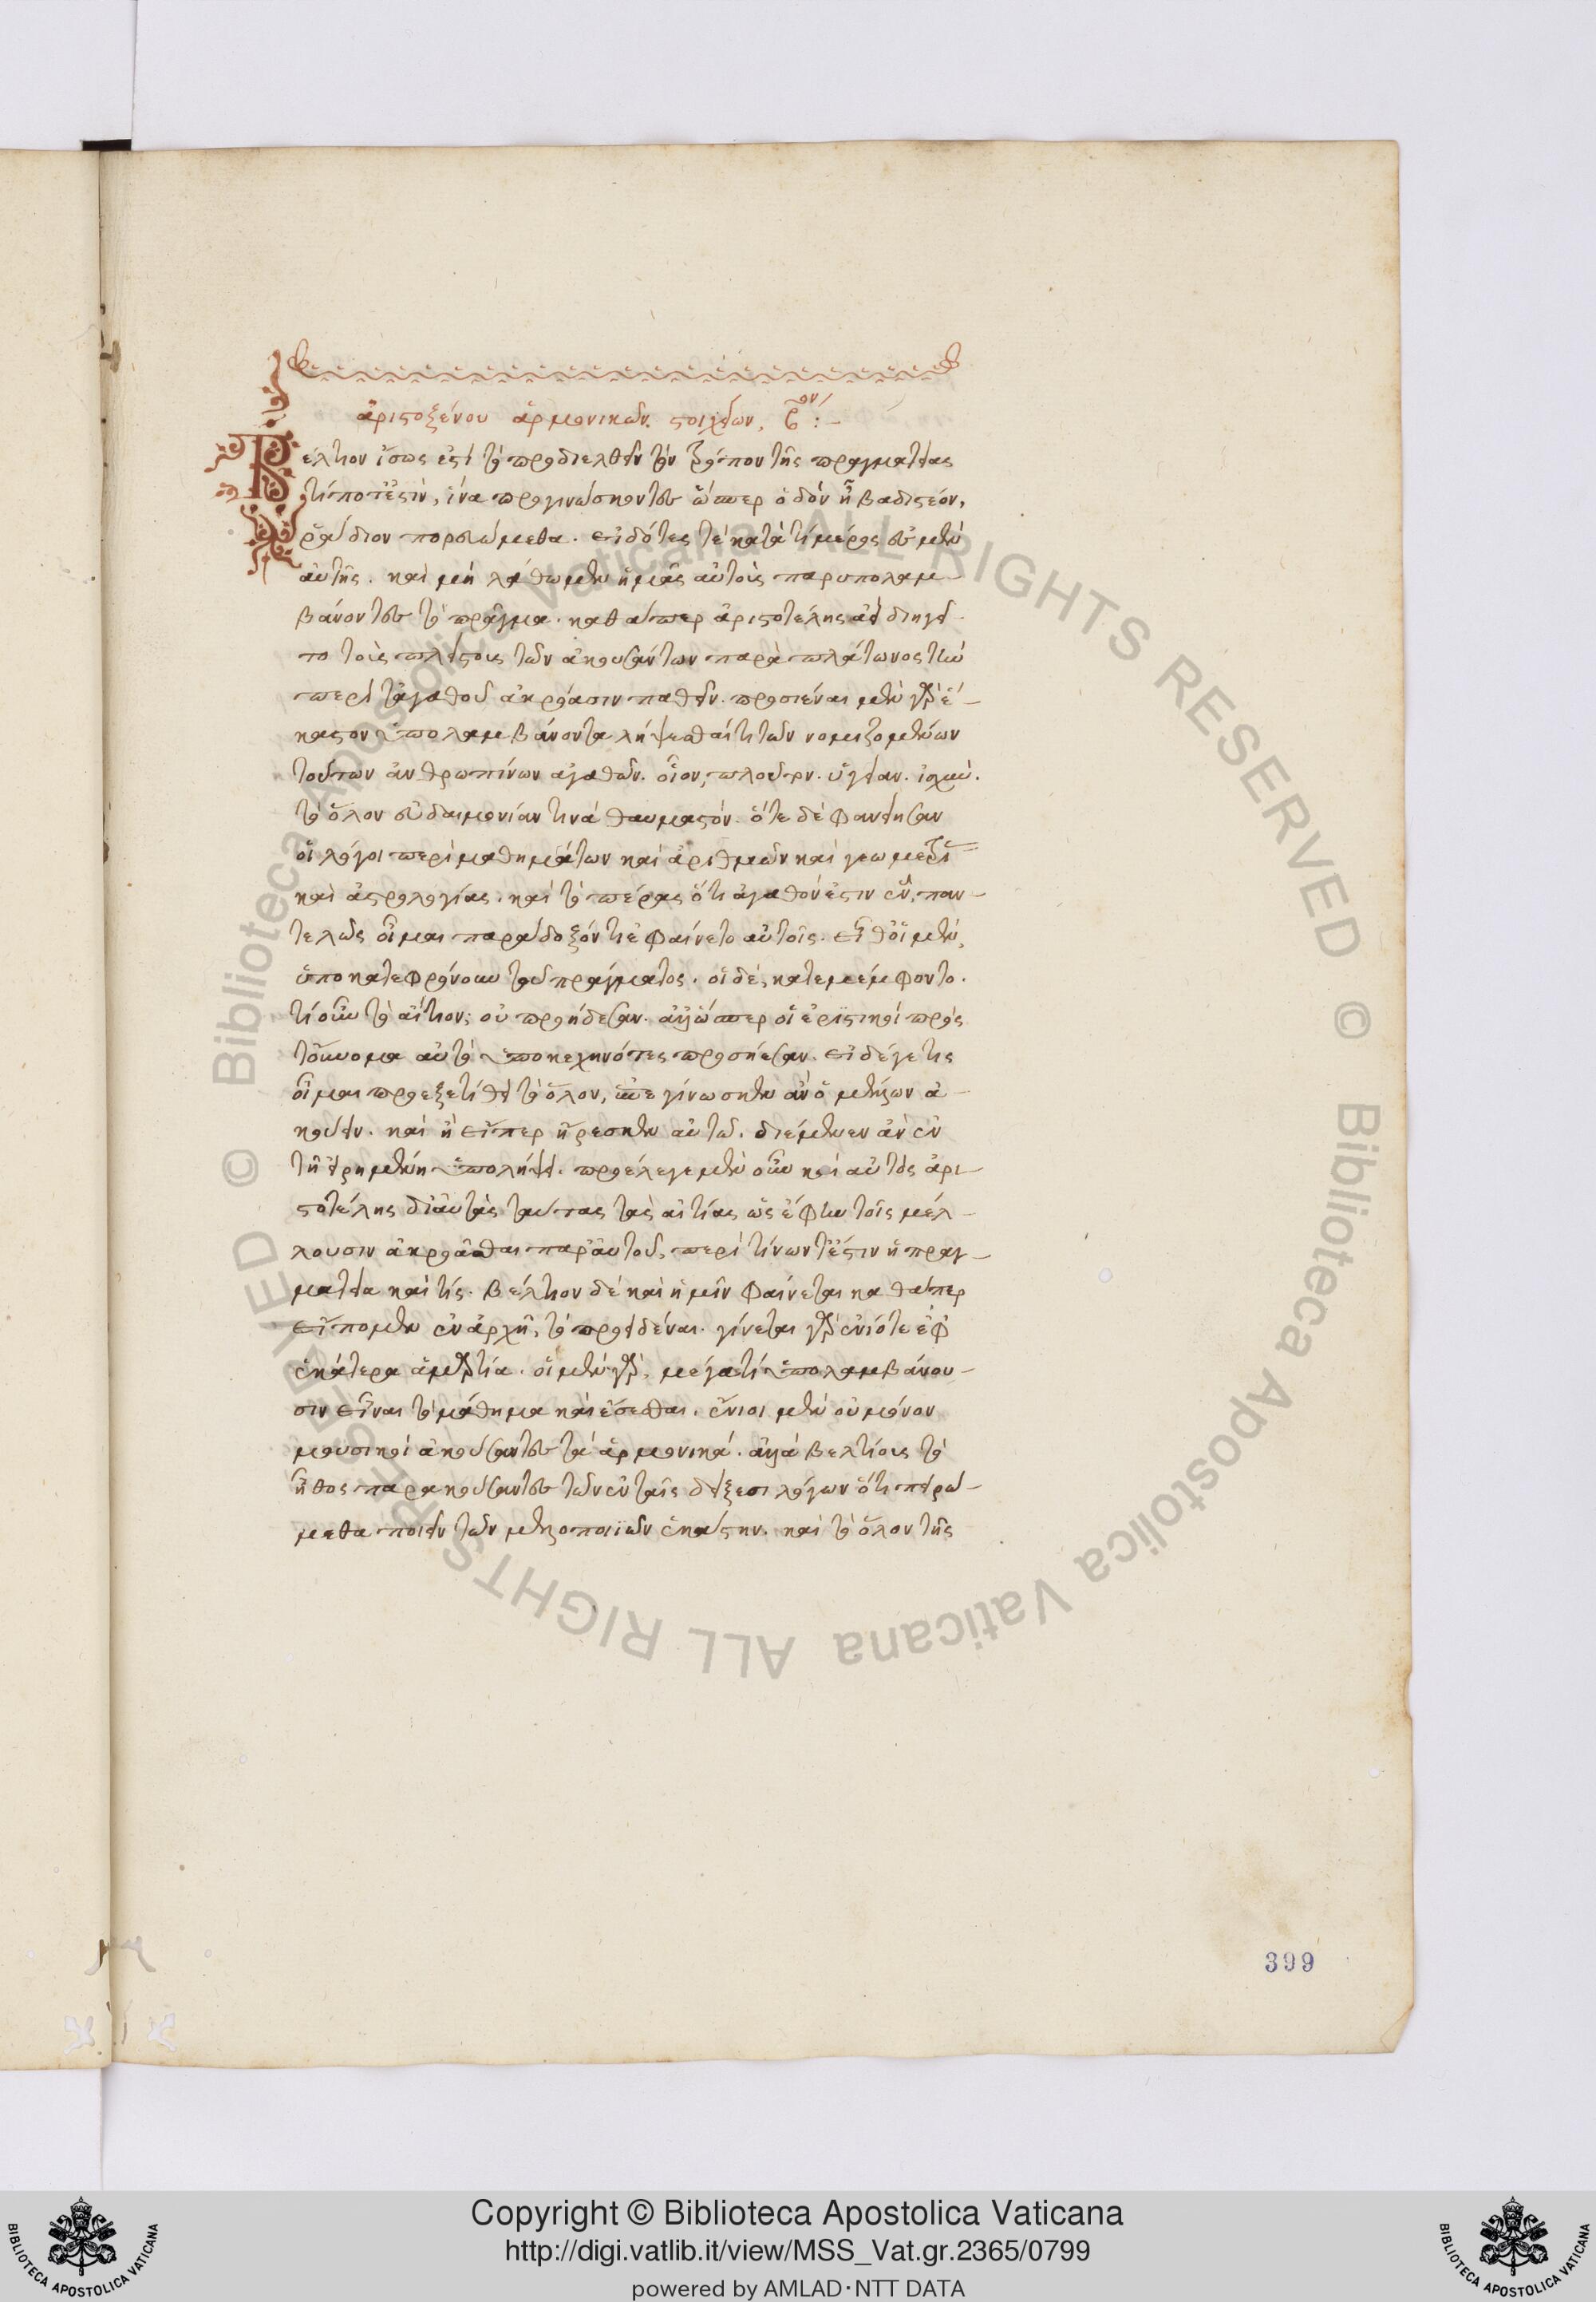 ἀριστοξένου ἁρμονικῶν στοιχείων, βον :-
Βέλτιον ἴσως ἐστὶ τὸ προδιελθεῖν τὸν τρόπον τῆς πραγματείας
τί ποτ' ἐστὶν, ἵνα προγινώσκοντες ὥσπερ ὁδὸν ᾗ βαδιστέον,
ῥᾴδιον πορευώμεθα. εἰδότες τὲ κατὰ τί μέρος ἐσμὲν
αὐτῆς. καὶ μὴ λάθωμεν ἡμᾶς αὐτοὺς παρυπολαμ-
βάνοντες τὸ πρᾶγμα. καθάπερ ἀριστοτέλης ἀεὶ διηγεῖ-
το τοὺς πλείστους τῶν ἀκουσάντων παρὰ πλάτωνος τὴν
περὶ τἀγαθοῦ ἀκρόασιν παθεῖν. προσιέναι μὲν γὰρ ἕ-
καστον ὑπολαμβάνοντα λήψεσθαί τι τῶν νομιζομένων
τούτων ἀνθρωπίνων ἀγαθῶν. οἷον, πλοῦτον. ὑγίειαν. ἰσχὺν.
τὸ ὅλον εὐδαιμονίαν τινὰ θαυμαστόν. ὅτε δὲ φανείησαν
οἱ λόγοι περὶ μαθημάτων καὶ ἀριθμῶν καὶ γεωμετρίας
καὶ ἀστρολογίας. καὶ τὸ πέρας ὅτι ἀγαθόν ἐστιν ἓν, παν-
τελῶς οἶμαι παράδοξόν τι ἐφαίνετο αὐτοῖς. εἶθ' οἱ μὲν,
ὑποκατεφρόνουν τοῦ πράγματος. οἱ δὲ, κατεμέμφοντο.
τί οὖν τὸ αἴτιον; οὐ προῄδεσαν. ἀλλ' ὥσπερ οἱ ἐριστικοὶ πρὸς
τοὔνομα αὐτὸ ὑποκεχηνότες προσῄεσαν. εἰ δέ γέ τις
οἶμαι προεξετίθει τὸ ὅλον, ἀπεγίνωσκεν ἂν ὁ μέλλων ἀ-
κούειν. καὶ ἢ εἴπερ ἤρεσκεν αὐτῷ. διέμενεν ἂν ἐν
τῇ εἰρημένῃ ὑπολήψει. προέλεγε μὲν οὖν καὶ αὐτὸς ἀρι-
στοτέλης δι' αὐτὰς ταύτας τὰς αἰτίας ὡς ἔφην τοῖς μέλ-
λουσιν ἀκροᾶσθαι παρ' αὐτοῦ, περὶ τίνων τ' ἐστὶν ἡ πραγ-
ματεία καὶ τίς. βέλτιον δὲ καὶ ἡμῖν φαίνεται καθάπερ
εἴπομεν ἐν ἀρχῇ, τὸ προειδέναι. γίνεται γὰρ ἐνίοτε ἐφ'
ἑκάτερα ἁμαρτία. οἱ μὲν γὰρ, μέγα τι ὑπολαμβάνου-
σιν εἶναι τὸ μάθημα καὶ ἔσεσθαι. ἔνιοι μὲν οὐ μόνον
μουσικοὶ ἀκούσαντες τὰ ἁρμονικά. ἀλλὰ βελτίους τὸ
ἦθος παρακούσαντες τῶν ἐν ταῖς δείξεσι λόγων ὅτι πειρώ-
μεθα ποιεῖν τῶν μελοποιϊῶν ἑκάστην. καὶ τὸ ὅλον τῆς
399
© Biblioteca Apostolica Vaticana ALL RIGHTS RESERVED © Biblioteca Apostolica Vaticana ALL RIGHTS RESERVED
Copyright © Biblioteca Apostolica Vaticana
http://digi.vatlib.it/view/MSS_Vat.gr.2365/0799
powered by AMLAD·NTT DATA
BIBLIOTECA APOSTOLICA VATICANA
BIBLIOTECA APOSTOLICA VATICANA